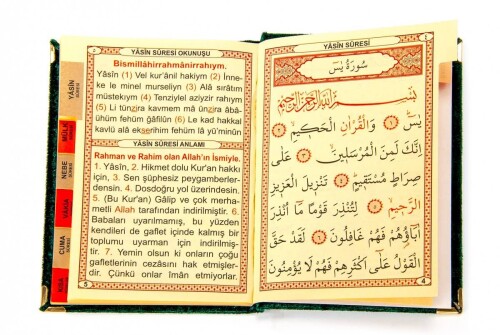 YÂSÎN SÛRESİ OKUNUŞU
Bismillâhirrahmânirrahıym.
Yâsîn (1) Vel kur'ânil hakiym (2) İnne-
ke le minel murseliyn (3) Alâ sırâtım
müstekıym (4) Tenziylel aziyzir rahıym.
(5) Li tünzira kavmem mâ ünzira âbâ-
ühüm fehüm ğâfilûn (6) Le kad hakkal
kavlü alâ ekserihim fehüm lâ yü'minûn
YÂSÎN SÛRESİ ANLAMI
Rahman ve Rahim olan Allah'ın İsmiyle.
1. Yâsîn, 2. Hikmet dolu Kur'an hakkı
için, 3. Sen şüphesiz peygamberler-
densin. 4. Dosdoğru yol üzerindesin.
5. (Bu Kur'an) Gâlip ve çok merha-
metli Allah tarafından indirilmiştir. 6.
Babaları uyarılmamış, bu yüzden
kendileri de gaflet içinde kalmış bir
toplumu uyarman için indirilmiş-
tir. 7. Yemin olsun ki onların çoğu
gafletlerinin cezasını hak etmişler-
dir. Çünkü onlar îman etmiyorlar.
5
YÂSÎN
SÛRESİ
MÜLK
NEBE
SÛRESİ
VAKIA
CUMA
SÛRESİ
NİSA
YÂSÎN SÛRESİ
سُورَةُ يٰسٓ
بِسْمِ اللّٰهِ الرَّحْمٰنِ الرَّحِيمِ
يٰسٓ ﴿١﴾ وَالْقُرْاٰنِ الْحَكِيمِ ﴿٢﴾
اِنَّكَ لَمِنَ الْمُرْسَلِينَ ﴿٣﴾ عَلٰى
صِرَاطٍ مُسْتَقِيمٍ ﴿٤﴾ تَنْزِيلَ الْعَزِيزِ
الرَّحِيمِ ﴿٥﴾ لِتُنْذِرَ قَوْمًا مَٓا اُنْذِرَ
اٰبَٓاؤُهُمْ فَهُمْ غَافِلُونَ ﴿٦﴾ لَقَدْ حَقَّ
الْقَوْلُ عَلٰٓى اَكْثَرِهِمْ فَهُمْ لَا يُؤْمِنُونَ
4